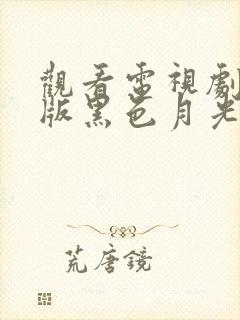 觀看電視劇
版黑色月光
荒唐鏡